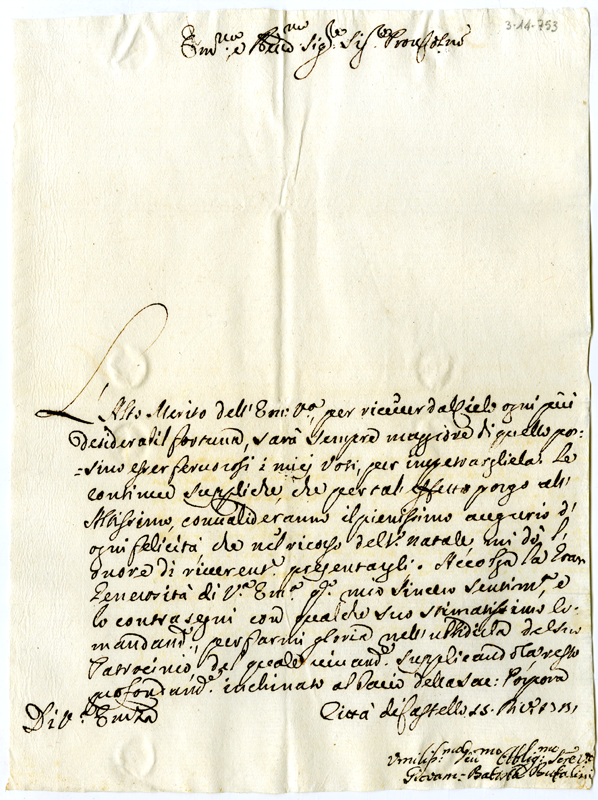 3-14-753
Em.mo e Rmo Sig.re Sig.re Pron Col.mo
L'Alto Merito dell' Em: V.a per ricever dal Cielo ogni più
desiderabil fortuna, sarà sempre maggiore di quello pos-
-sino esser fervorosi i miei Voti, per impetrargliela. Le
continue suppliche, che per tal effetto porgo all'
Altissimo, convalideranno il pienissimo augurio d'
ogni felicità, che nel ricorso del S. Natale mi dò l'
onore di riverent.e presentargli. Accolga la Gran
Generosità di V.a Em.a q.o mio sincero sentim.o, e
lo contrasegni con qualche suo stimatissimo Co-
mandam.o, per farmi gloria nell' ubbidirla del suo
Patrocinio, del quale supplicandola resto
profondam.e inchinato al bacio della Sac: Porpora
Di V.a Em.za Città di Castello 15. Xbre
Umiliss.mo Dev.mo Obblig.mo Ser.e V.o
Giovam: Batista Bufalini